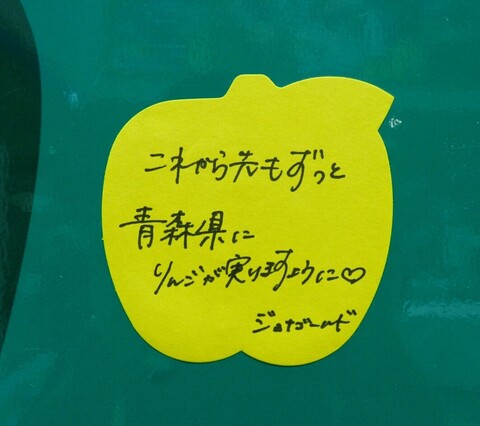 これから先もずっと
青森県に
りんごが実りますように♡
ジョナゴールド